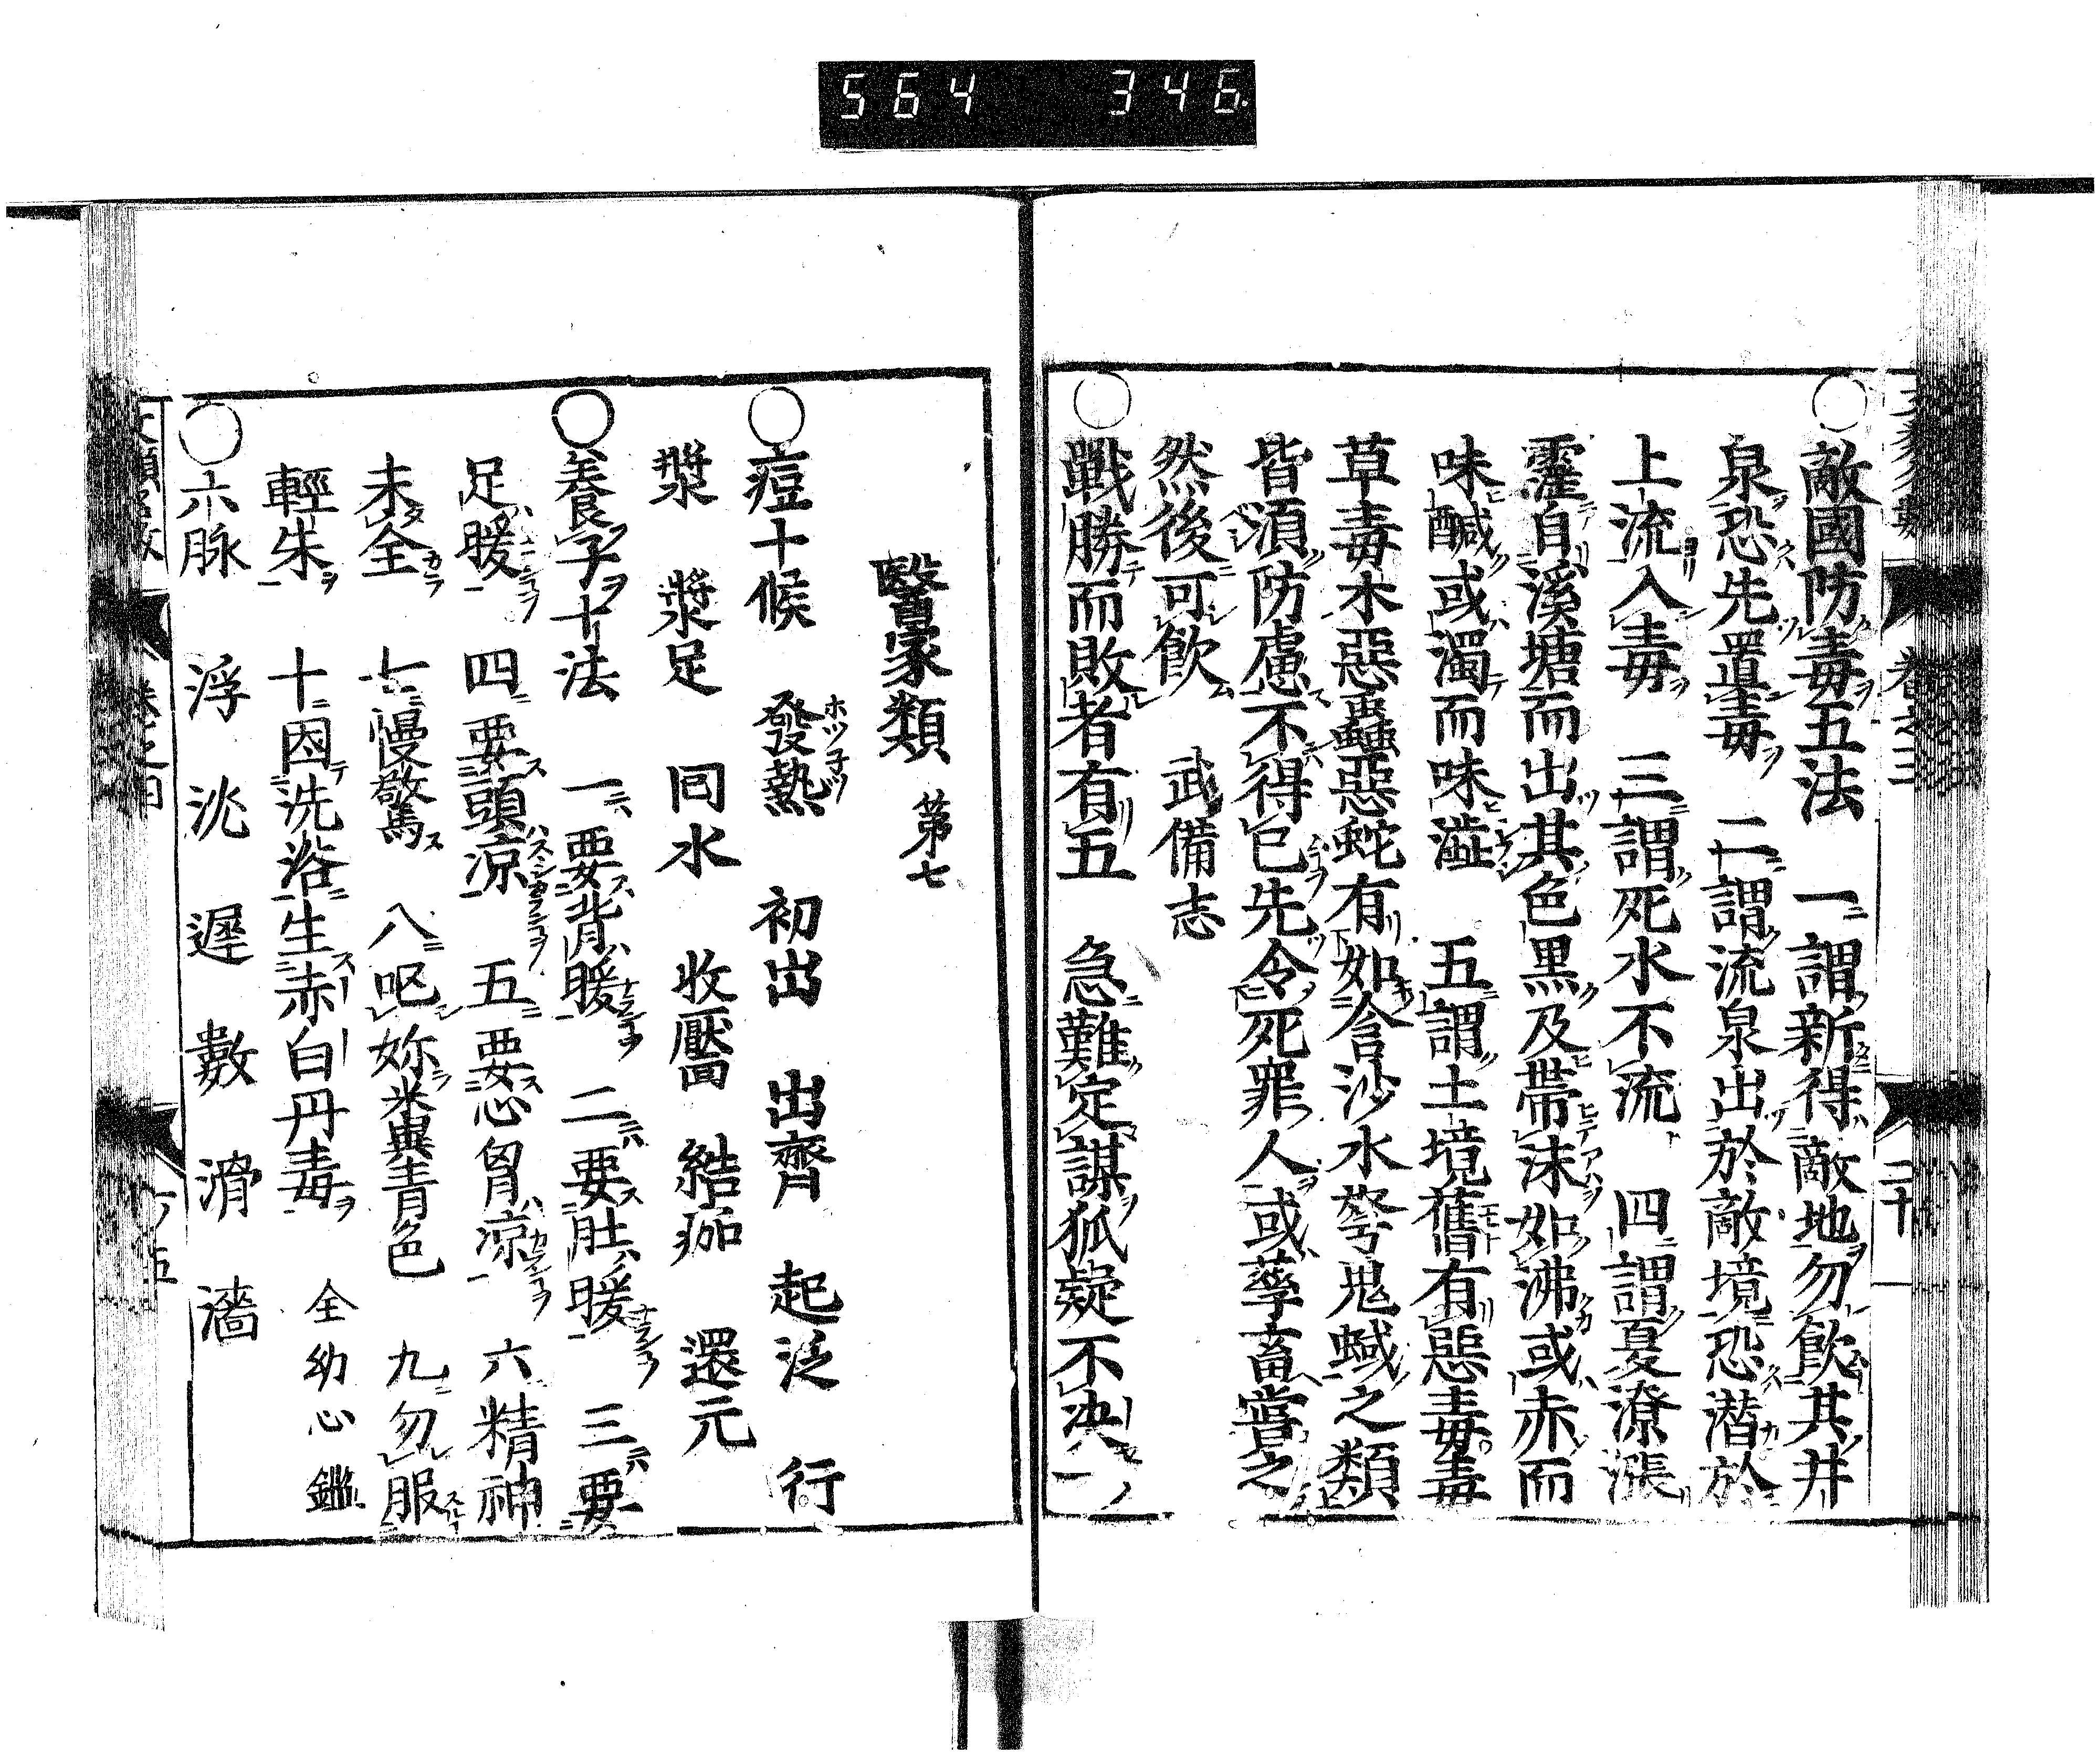 564 346
○敵國防毒五法 一謂新得敵地勿飲其井
泉恐先置毒 二謂流泉出於敵境恐潜於
上流入毒 三謂死水不流 四謂夏潦漲
霪自溪塘而出其色黒及帯沫如沸或赤而
味鹹或濁而味澁 五謂土境舊有惡毒毒
草毒木惡蟲惡蛇有如含沙水弩鬼蜮之類
皆須防慮不得已先令死罪人或孳畜嘗之
然後可飲 武備志
○戰勝而敗者有五 急難定謀狐疑不决一
醫家類 第七
○痘十候 發熱 初出 出齊 起泛 行
漿 漿足 囘水 收靨 結痂 還元
○養子十法 一要背暖 二要肚暖 三要
足暖 四要頭凉 五要心胷凉 六精神
未全 七慢驚 八呕妳米糞青色 九勿服
輕朱 十因洗浴生赤白丹毒 全幼心鑑
○六脉 浮 沈 遲 數 滑 濇